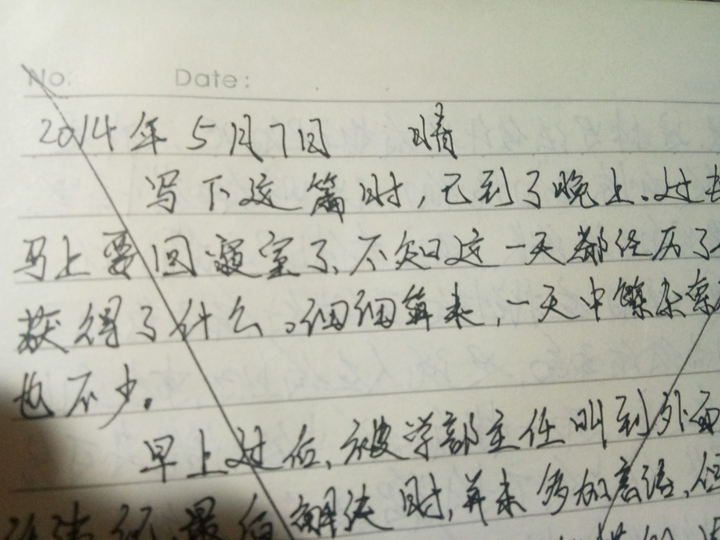 No: Date:
2014年5月7日 晴
写下这篇时,已到了晚上、过
马上要回寝室了、不知这一天都经历了
获得了什么。细细算来,一天中繁杂
也不少。
早上过后、被学部主任叫到外面
最后解决时,并未多加言语,但